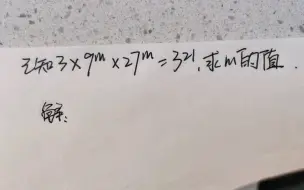 已知3×9ᵐ×27ᵐ=3²¹,求m的值.
解: